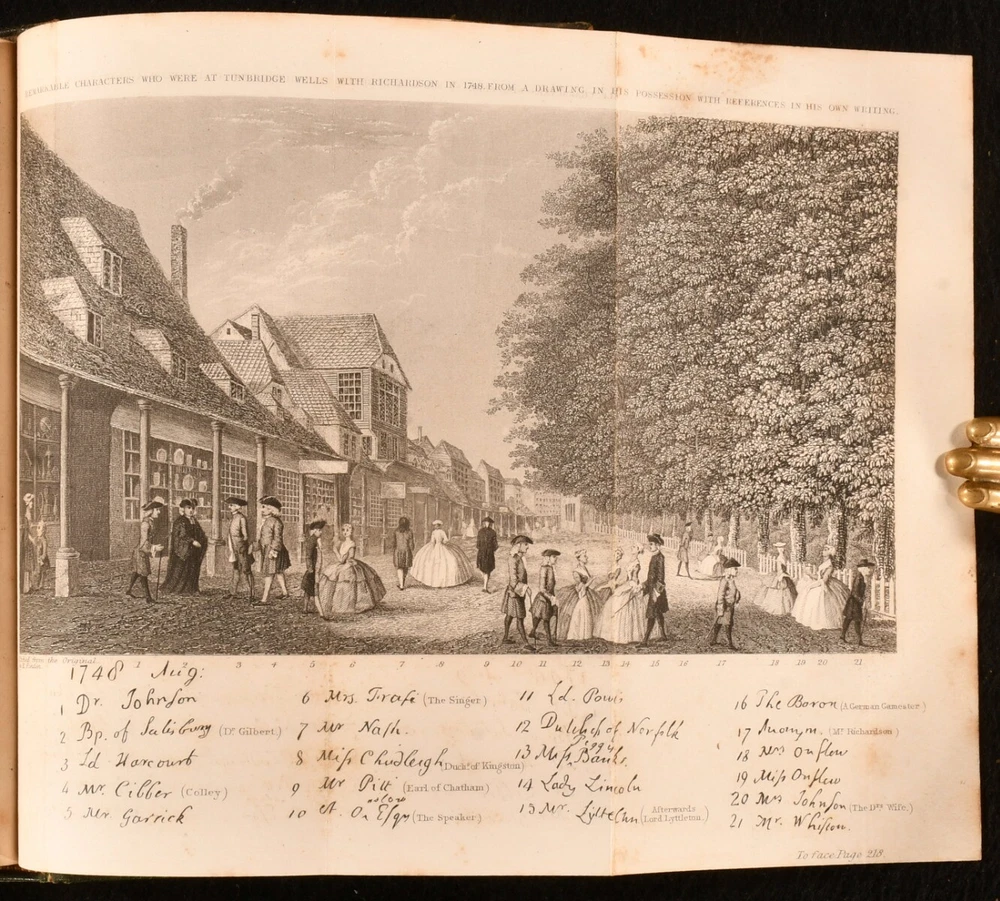 REMARKABLE CHARACTERS WHO WERE AT TUNBRIDGE WELLS WITH RICHARDSON IN 1748. FROM A DRAWING IN HIS POSSESSION WITH REFERENCES IN HIS OWN WRITING.
from the Original
1 2 3 4 5 6 7 8 9 10 11 12 13 14 15 16 17 18 19 20 21
1748 Aug:
1 Dr. Johnson
2 Bp. of Salisbury (Dr Gilbert.)
3 Ld Harcourt
4 Mr. Cibber (Colley)
5 Mr. Garrick
6 Mrs. Frasi (The Singer.)
7 Mr Nash.
8 Miss Chudleigh (Duchs. of Kingston)
9 Mr Pitt (Earl of Chatham)
10 A. Onslow Esqr (The Speaker.)
11 Ld. Powis
12 Dutchess of Norfolk
13 Miss Peggy Banks.
14 Lady Lincoln
15 Mr. Lyttelton (Afterwards Lord Lyttleton.)
16 The Baron (A German Gamester.)
17 Anonym. (Mr Richardson)
18 Mrs Onslow
19 Miss Onslow
20 Mrs Johnson (The Drs. Wife.)
21 Mr. Whiston.
To face Page 213.